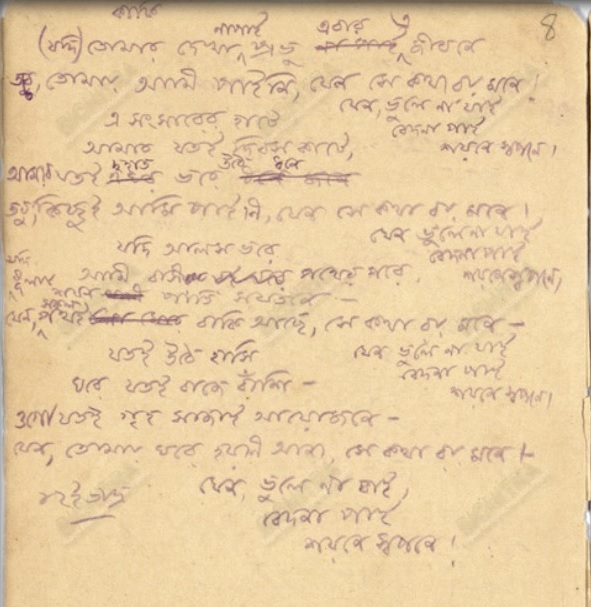 কাফি
৪
(যদি) তোমার দেখা না পাই প্রভু এবার এ জীবনে
তবু, তোমায় আমি পাইনি, যেন সে কথা রয় মনে!
যেন, ভুলে না যাই
বেদনা পাই
শয়নে স্বপনে।
এ সংসারের হাটে
আমার যতই দিবস কাটে,
আমার যতই দুহাত ভরে উঠে ধনে
তবু, কিছুই আমি পাইনি, যেন সে কথা রয় মনে।
যেন ভুলে না যাই
বেদনা পাই
শয়নে স্বপনে,
যদি আলসভরে
আমি বসি পথের পরে,
যদি ধূলায় শয়ন পাতি সযতনে —
যেন, সকল পথই বাকি আছে, সে কথা রয় মনে —
যেন ভুলে না যাই
বেদনা পাই
শয়নে স্বপনে।
যতই উঠে হাসি
ঘরে যতই বাজে বাঁশি —
ওগো যতই গৃহ সাজাই আয়োজনে —
যেন, তোমায় ঘরে হয়নি আনা, সে কথা রয় মনে।—
যেন, ভুলে না যাই,
বেদনা পাই
শয়নে স্বপনে!
১২ই ভাদ্র